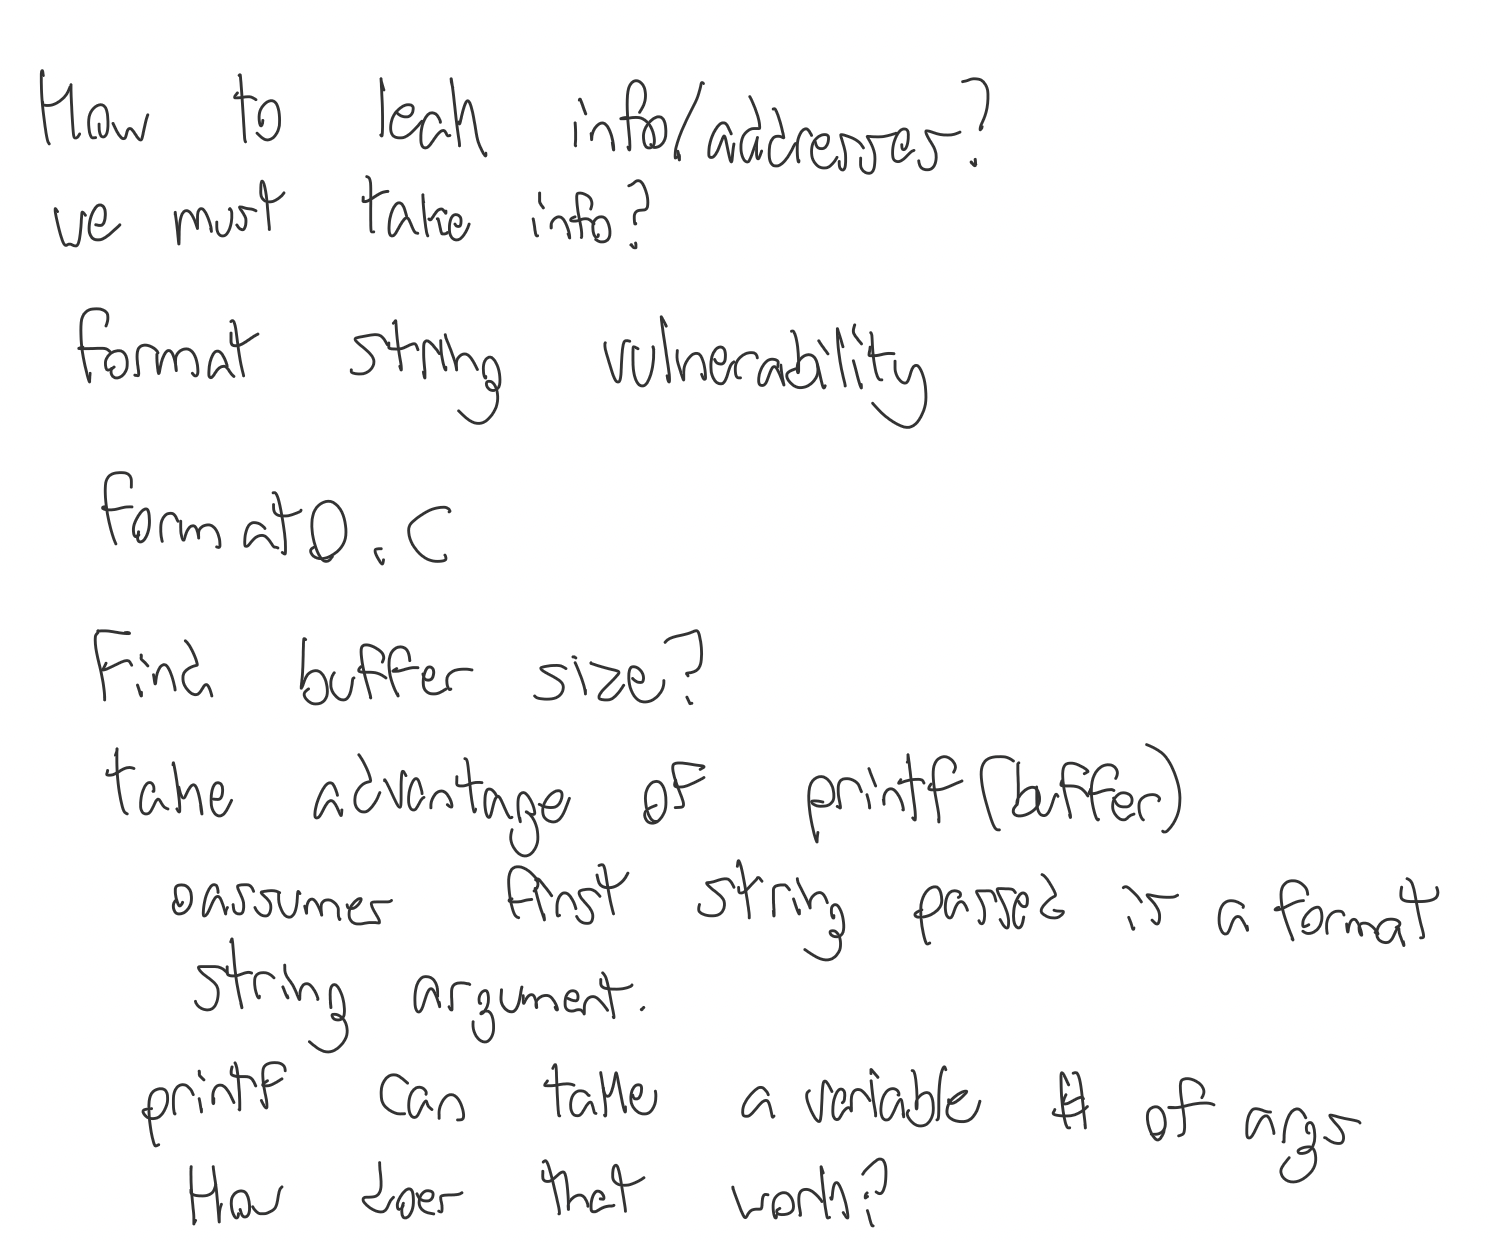 How to leak info/addresses?
we must take info?
format string vulnerability
format0.c
Find buffer size?
take advantage of printf(buffer)
○assumes first string passed is a format
string argument.
printf can take a variable # of args
How does that work?